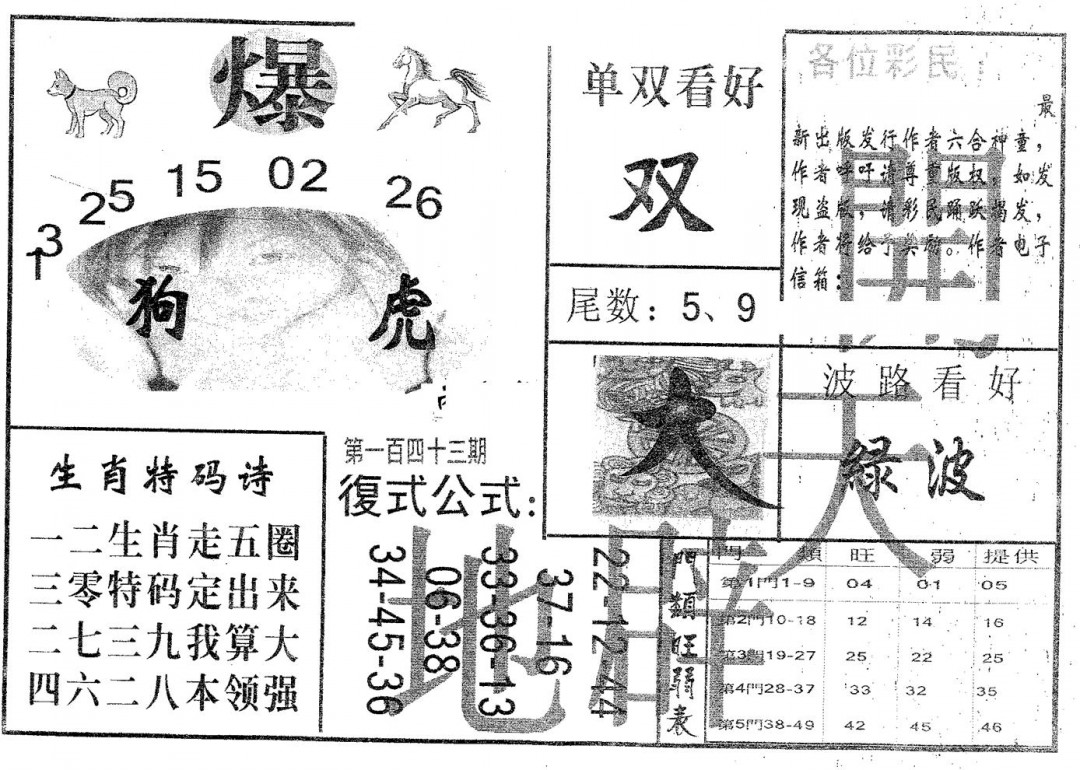 爆
13
25
15
02
26
狗
虎
单双看好
双
各位彩民：
最
新出版发行作者六合神童，
作者呼吁请尊重版权，如发
现盗版，请彩民踊跃揭发，
作者将给予奖励。作者电子
信箱：
開
尾数：5、9
大
波路看好
綠波
天
生肖特码诗
一二生肖走五圈
三零特码定出来
二七三九我算大
四六二八本领强
第一百四十三期
復式公式：
34-45-36
06-38
33-36-13
37-16
22-12-44
地
門類旺弱表
門 類 旺 弱 提供
第1門1-9 04 01 05
第2門10-18 12 14 16
第3門19-27 25 22 25
第4門28-37 33 32 35
第5門38-49 42 45 46